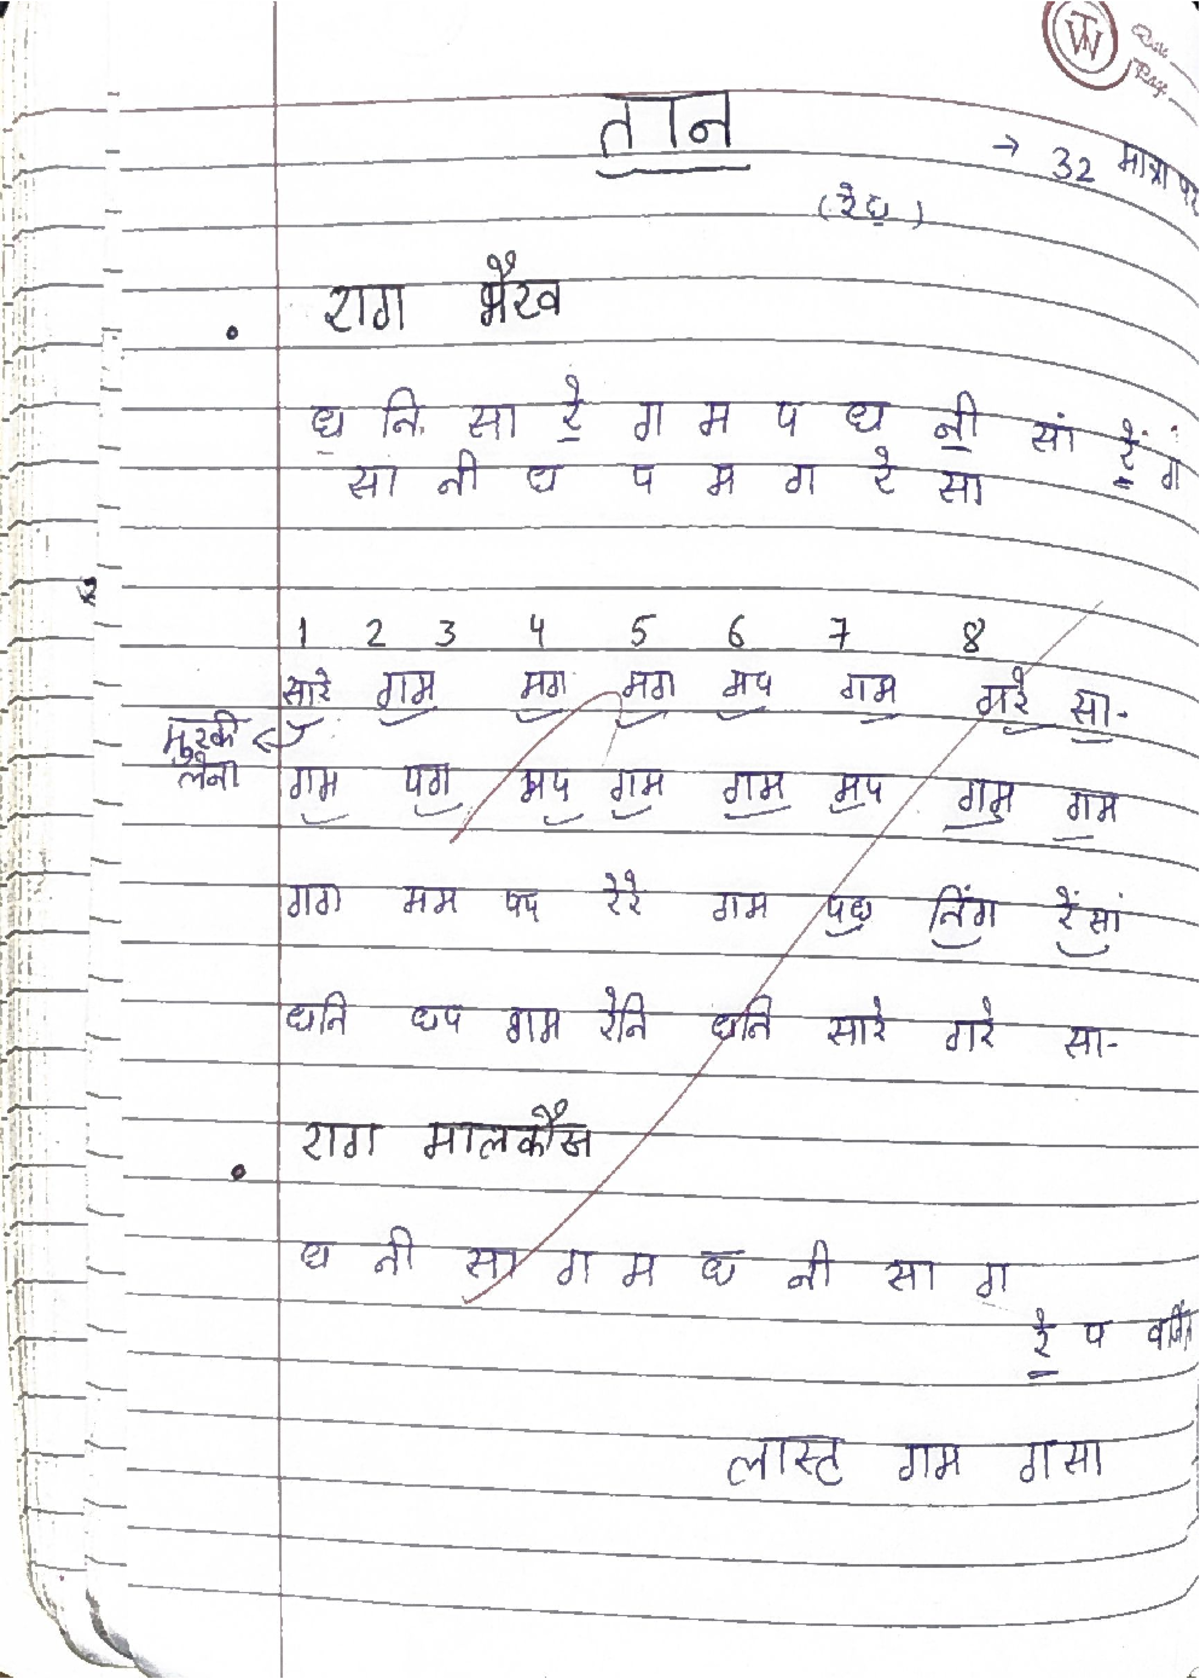 तान
→ 32 मात्रा पर
(रे॒ ध॒)
• राग भैरव
ध़ नि़ सा रे॒ ग म प ध नी॒ सां रें॒ गं
सां नी ध प म ग रे सा
1 2 3 4 5 6 7 8
सारे गम मग मग मप गम गरे सा-
मुरकी लेनी ←
गम पग मप गम गम मप गम गम
गग मम पप रेरे गम पध निंग रेंसां
धनि धप गम रेनि धनि सारे गरे सा-
• राग मालकौंस
ध नी सा ग म ध नी सा ग
रे॒ प वर्जित
लास्ट गम गसा